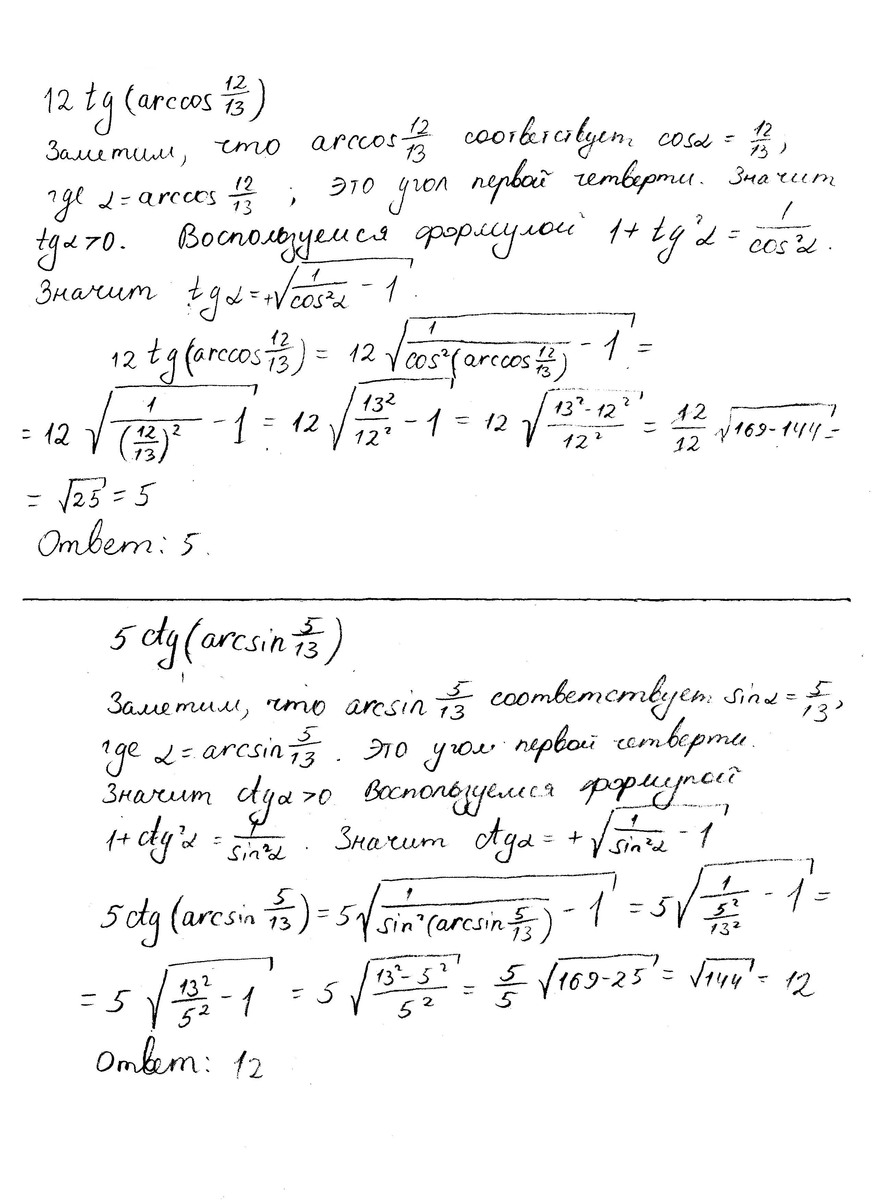 12 tg (arccos 12/13)
Заметим, что arccos 12/13 соответствует cosα = 12/13,
где α = arccos 12/13 ; это угол первой четверти. Значит
tgα > 0. Воспользуемся формулой 1 + tg²α = 1/cos²α.
Значит tgα = +√(1/cos²α - 1).
12 tg (arccos 12/13) = 12 √(1/cos²(arccos 12/13) - 1) =
= 12 √(1/(12/13)² - 1) = 12 √(13²/12² - 1) = 12 √((13² - 12²)/12²) = 12/12 √(169-144) =
= √25 = 5
Ответ: 5.
5 ctg (arcsin 5/13)
Заметим, что arcsin 5/13 соответствует sinα = 5/13,
где α = arcsin 5/13. Это угол первой четверти.
Значит ctgα > 0 Воспользуемся формулой
1 + ctg²α = 1/sin²α. Значит ctgα = +√(1/sin²α - 1)
5 ctg (arcsin 5/13) = 5 √(1/sin²(arcsin 5/13) - 1) = 5 √(1/(5²/13²) - 1) =
= 5 √(13²/5² - 1) = 5 √((13² - 5²)/5²) = 5/5 √(169-25) = √144 = 12
Ответ: 12